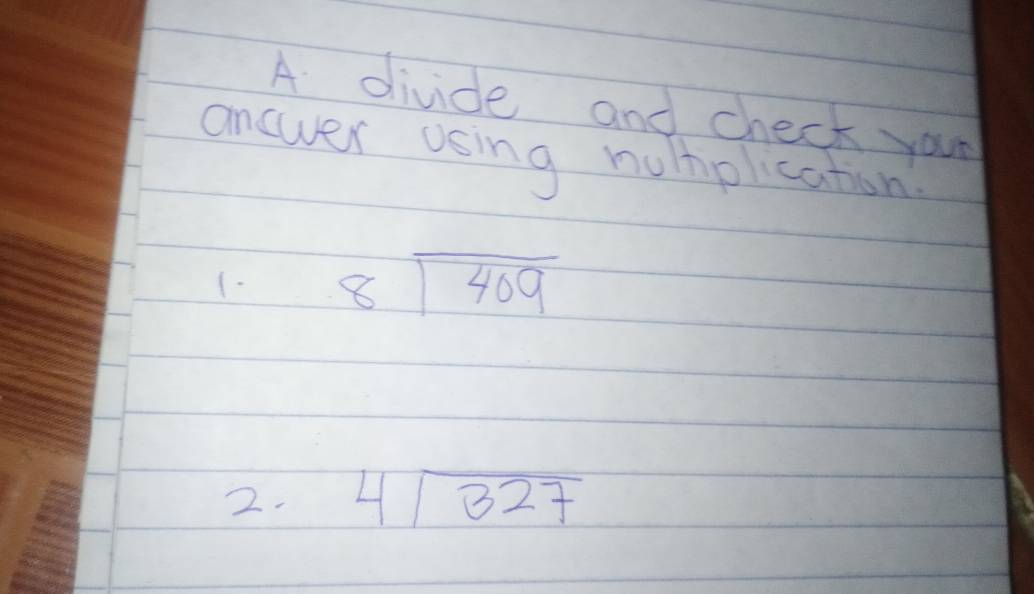 A. divide and check your
answer using multiplication.
1. 8 409
2. 4 327